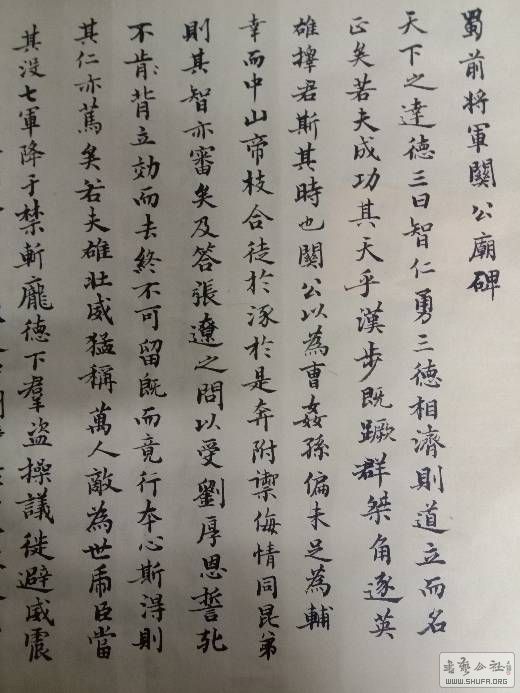 蜀前将軍關公廟碑
天下之達徳三曰智仁勇三徳相濟則道立而名
正矣若夫成功其天乎漢步既蹶群桀角逐英
雄擇君斯其時也關公以為曺姦孫偏未足為輔
幸而中山帝枝合徒於涿於是奔附禦侮情同昆弟
則其智亦審矣及答張遼之問以受劉厚恩誓死
不肯背立効而去終不可留既而竟行本心斯得則
其仁亦篤矣若夫雄壮威猛稱萬人敵為世帍臣當
其没七軍降于禁斬龐徳下羣盗操議徙避威震
書藝公社
WWW.SHUFA.ORG